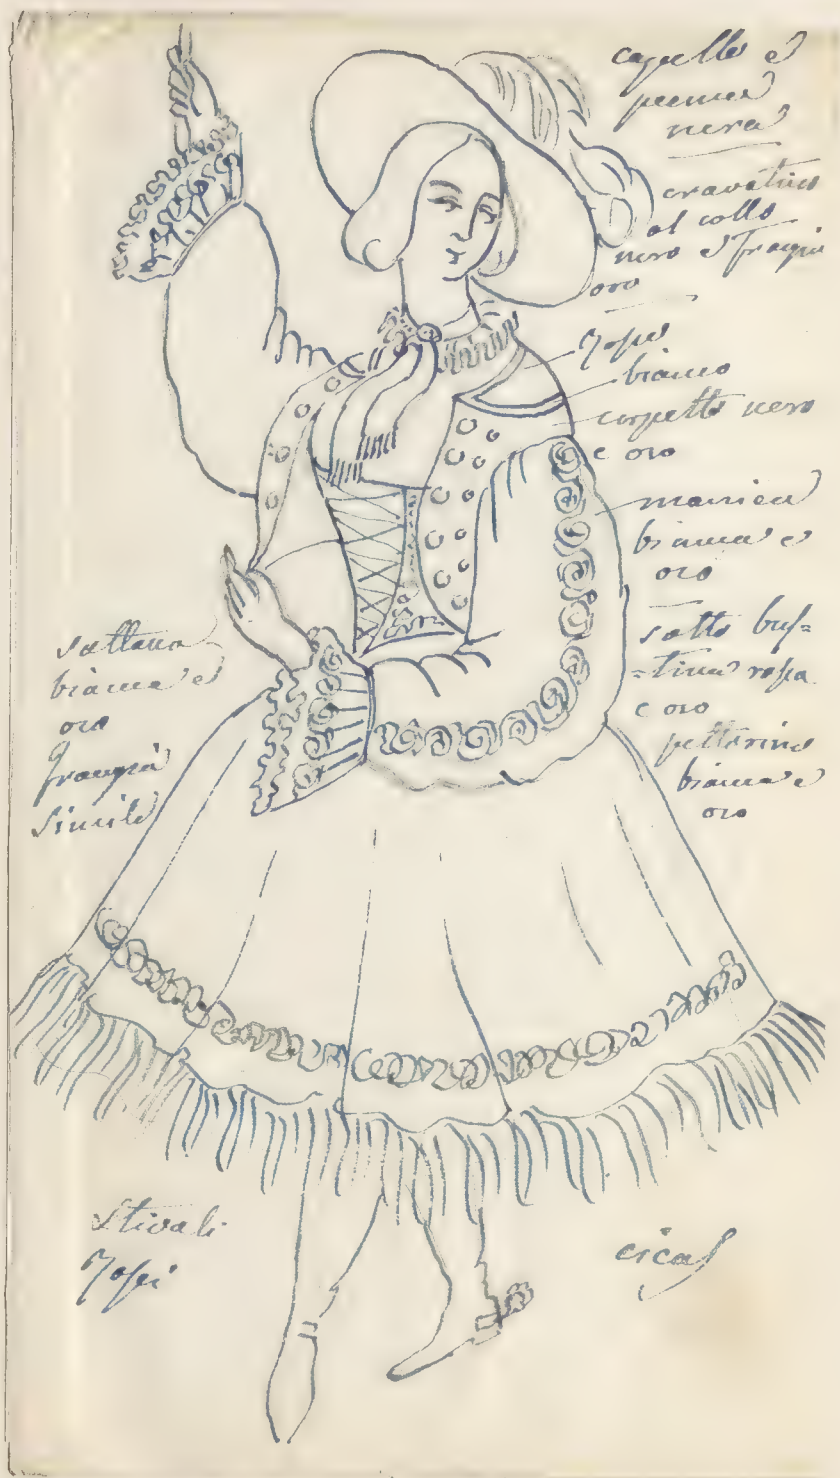 capello e
piuma
nera
cravatino
al collo
nero e frangia
oro
rosso
bianco
corpetto nero
e oro
manica
bianca e
oro
sotto bus=
=tina rossa
e oro
pettorino
bianca e
oro
sottana
bianca e
oro
frangia
simile
stivali
rossi